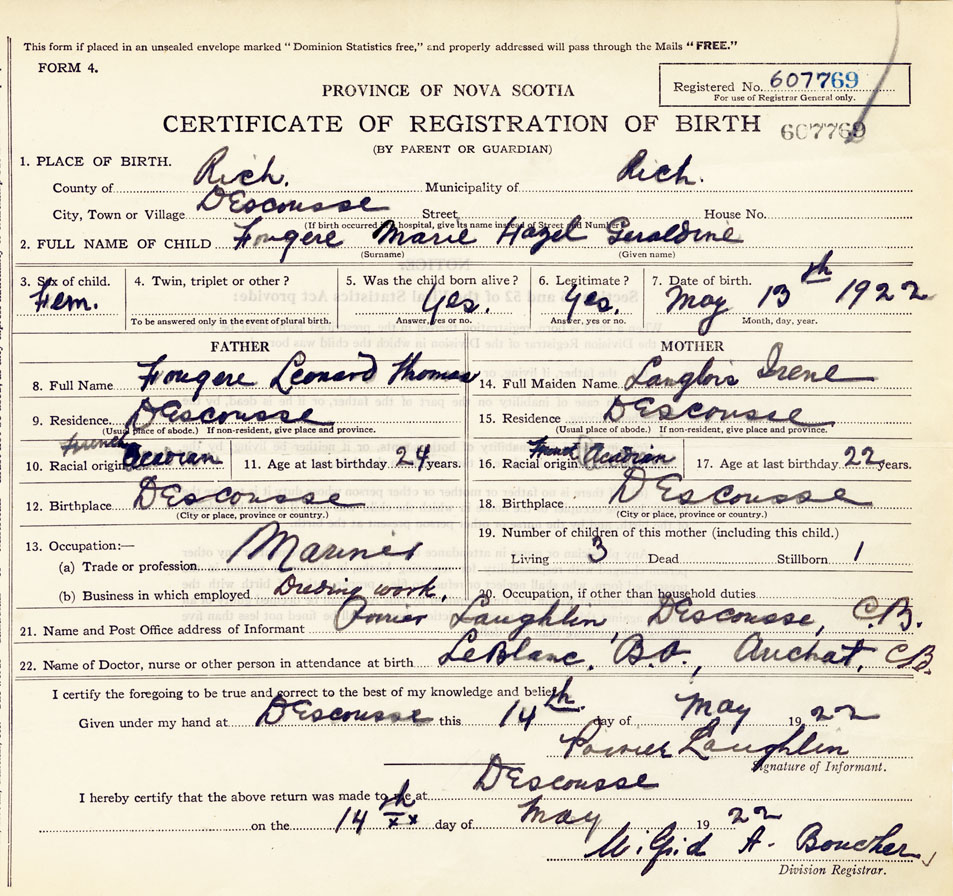 This form if placed in an unsealed envelope marked "Dominion Statistics free," and properly addressed will pass through the Mails "FREE."
FORM 4.
Registered No. 607769
For use of Registrar General only.
PROVINCE OF NOVA SCOTIA
CERTIFICATE OF REGISTRATION OF BIRTH 607769
(BY PARENT OR GUARDIAN)
1. PLACE OF BIRTH.
County of Rich. Municipality of Rich.
City, Town or Village DEscousse Street House No.
(If birth occurred in a hospital, give its name instead of Street and Number)
2. FULL NAME OF CHILD Fougere Marie Hazel Geraldine
(Surname) (Given name)
3. Sex of child. 4. Twin, triplet or other? 5. Was the child born alive? 6. Legitimate? 7. Date of birth.
Fem. Yes. Yes. May 13th 1922
To be answered only in the event of plural birth. Answer, yes or no. Answer, yes or no. Month, day, year.
FATHER MOTHER
8. Full Name Fougere Leonard Thomas 14. Full Maiden Name Langlois Irene
9. Residence DEscousse 15. Residence DEscousse
(Usual place of abode.) If non-resident, give place and province. (Usual place of abode.) If non-resident, give place and province.
10. Racial origin French Acadian 11. Age at last birthday 24 years. 16. Racial origin French Acadian 17. Age at last birthday 22 years.
12. Birthplace DEscousse 18. Birthplace DEscousse
(City or place, province or country.) (City or place, province or country.)
13. Occupation:— 19. Number of children of this mother (including this child.)
(a) Trade or profession Mariner Living 3 Dead Stillborn 1
(b) Business in which employed work. 20. Occupation, if other than household duties
21. Name and Post Office address of Informant Poirier Laughlin, DEscousse, C.B.
22. Name of Doctor, nurse or other person in attendance at birth LeBlanc, Arichat, C.B.
I certify the foregoing to be true and correct to the best of my knowledge and belief.
Given under my hand at DEscousse this 14th day of May 1922
Poirier Laughlin
Signature of Informant.
I hereby certify that the above return was made to me at DEscousse
on the 14th xx day of May 1922
A. Boucher
Division Registrar.